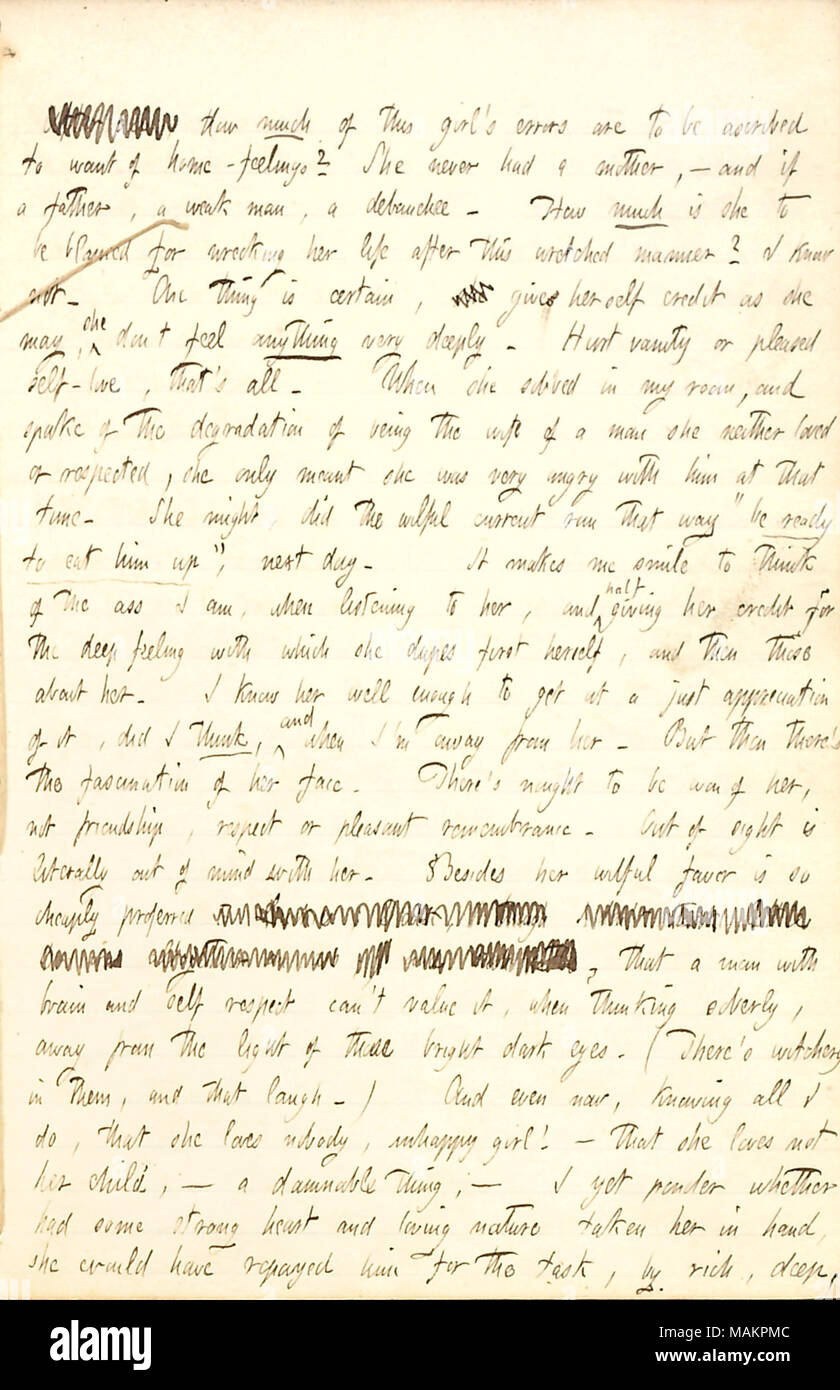 How much of this girl's errors are to be ascribed
to want of home-feelings? She never had a mother, — and if
a father, a weak man, a debauchee — How much is she to
be blamed for wrecking her life after this wretched manner? I know
not — One thing is certain, gives herself credit as she
may, she don't feel anything very deeply — Hurt vanity or pleased
self-love, that's all — When she sobbed in my room, and
spake of the degradation of being the wife of a man she neither loved
or respected, she only meant she was very angry with him at that
time — She might, did the wilful current run that way "be ready
to eat him up", next day — It makes me smile to think
of the ass I am, when listening to her, and half giving her credit for
the deep feeling with which she dupes first herself, and then those
about her — I know her well enough to get at a just appreciation
of it, did I think, and when I'm away from her — But then there's
the fascination of her face — There's nought to be won of her,
not friendship, respect or pleasant remembrance — Out of sight is
literally out of mind with her — Besides her wilful favor is so
cheaply proferred
, that a man with
brain and self respect can't value it, when thinking soberly,
away from the light of those bright dark eyes — (There's witchery
in them, and that laugh —) And even now, knowing all I
do, that she loves nobody, unhappy girl! — that she loves not
her child, — a damnable thing; — I yet ponder whether
had some strong heart and loving nature taken her in hand,
she would have repayed him for the task, by rich, deep,
alamy
Image ID: MAKPMC
www.alamy.com